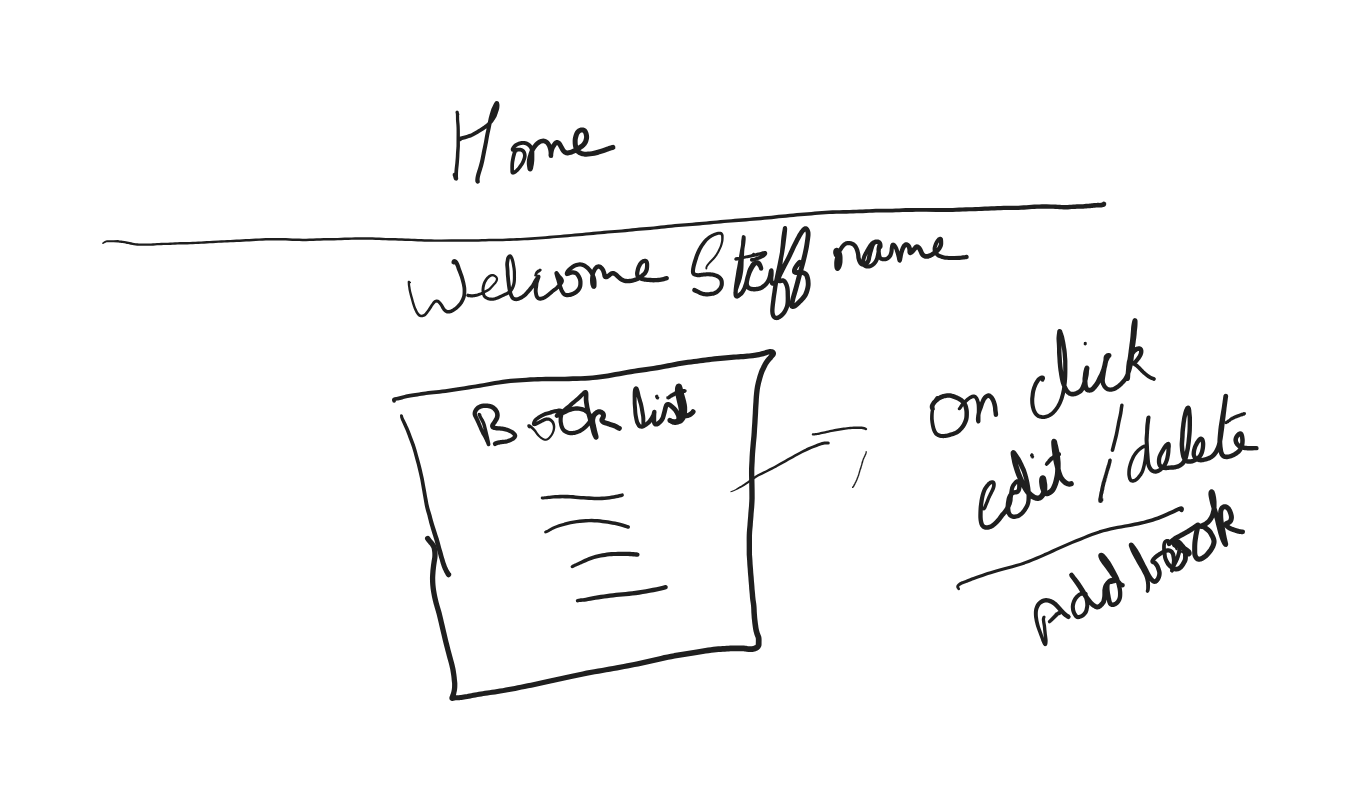 Home
Welcome Staff name
Book list
on click
edit / delete
Add book